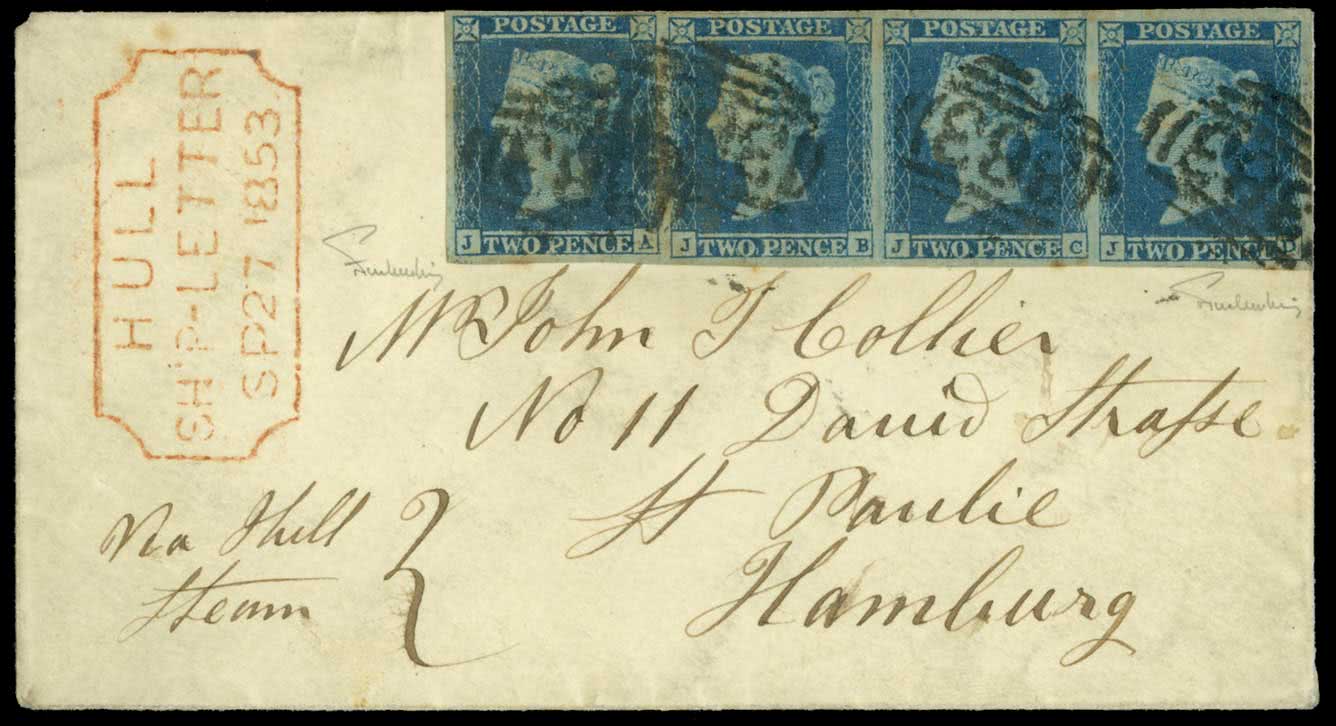 POSTAGE POSTAGE POSTAGE POSTAGE
J TWO PENCE A J TWO PENCE B J TWO PENCE C J TWO PENCE D
HULL
SHIP-LETTER
SP27 1853
Mr John T Collier
No 11 David Strasse
St Paulie
Hamburg
Via Hull
Steam